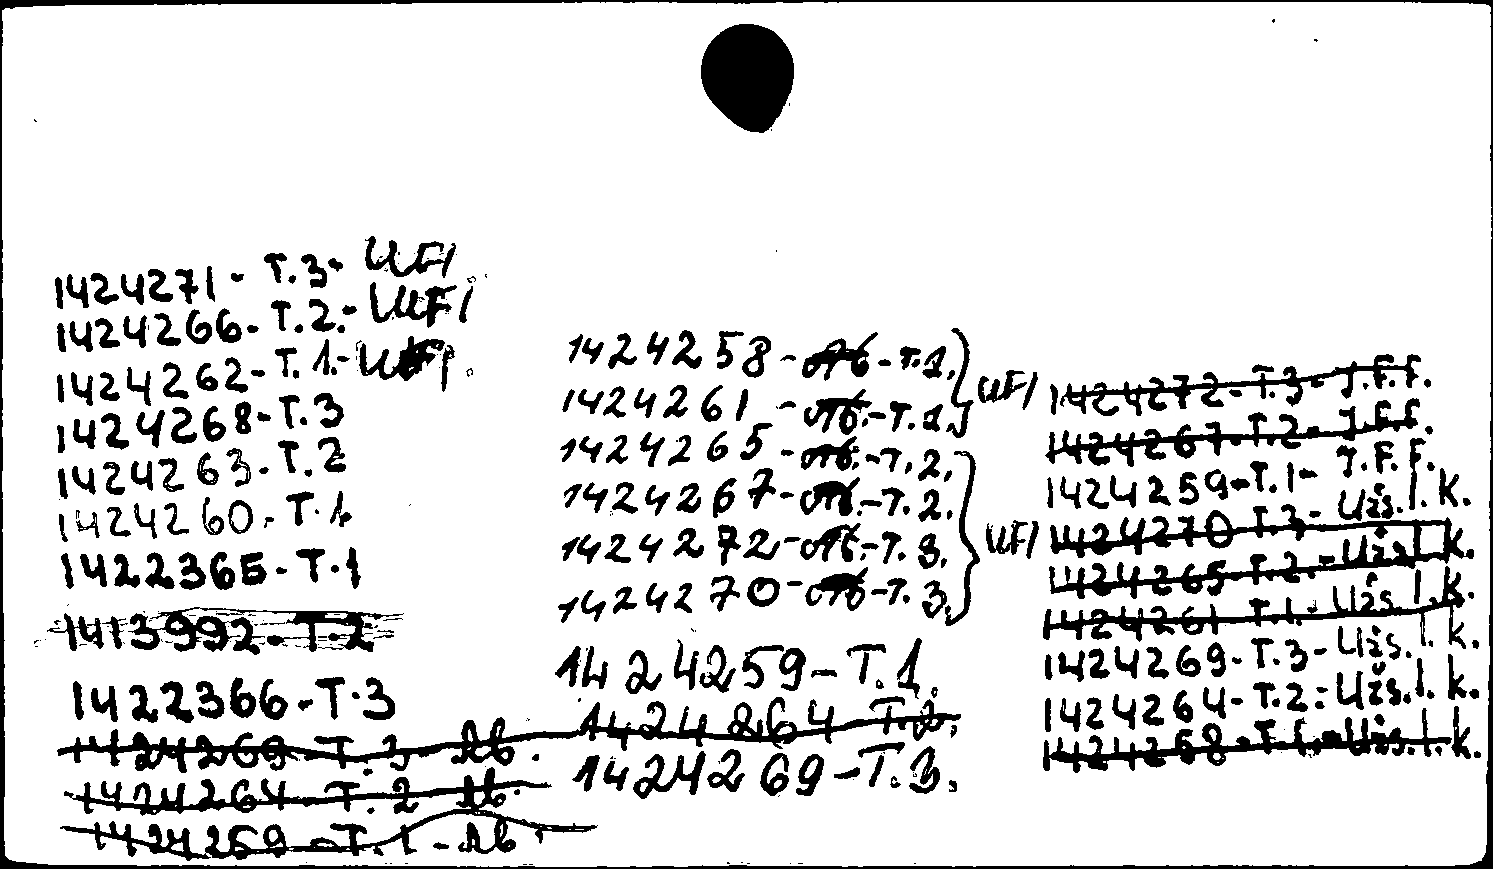 1424271 - T.3 - UFI
1424266 - T.2. - UFI
1424262 - T.1. - UFI.
1424268 - T.3
1424263 - T.2
1424260. - T.1
1422365 - T.1
1413992 - T-2
1422366 - T.3
1424269 - T.3 - Ab.
1424264 - T.2 Ab.
1424259 - T.1 - Ab.
1424258 - Ab - T.1.
1424261 - Ab. - T.1. UFI
1424265 - Ab. - T.2.
1424267 - Ab. - T.2.
1424272 - Ab. - T.3. UFI
1424270 - Ab - T.3.
1424259 - T.1.
1424264 T.2.
1424269 - T.3.
1424272 - T.3 - J.F.F.
1424267 - T.2 - J.F.F.
1424259 - T.1 - J.F.F.
1424270 T.3 - Užs. l. k.
1424265 - T.2. - Užs l. k.
1424261 T.1. - Užs. l. k.
1424269 - T.3 - Užs. l. k.
1424264 - T.2: Užs. l. k.
1424258 - T.1. - Užs. l. k.